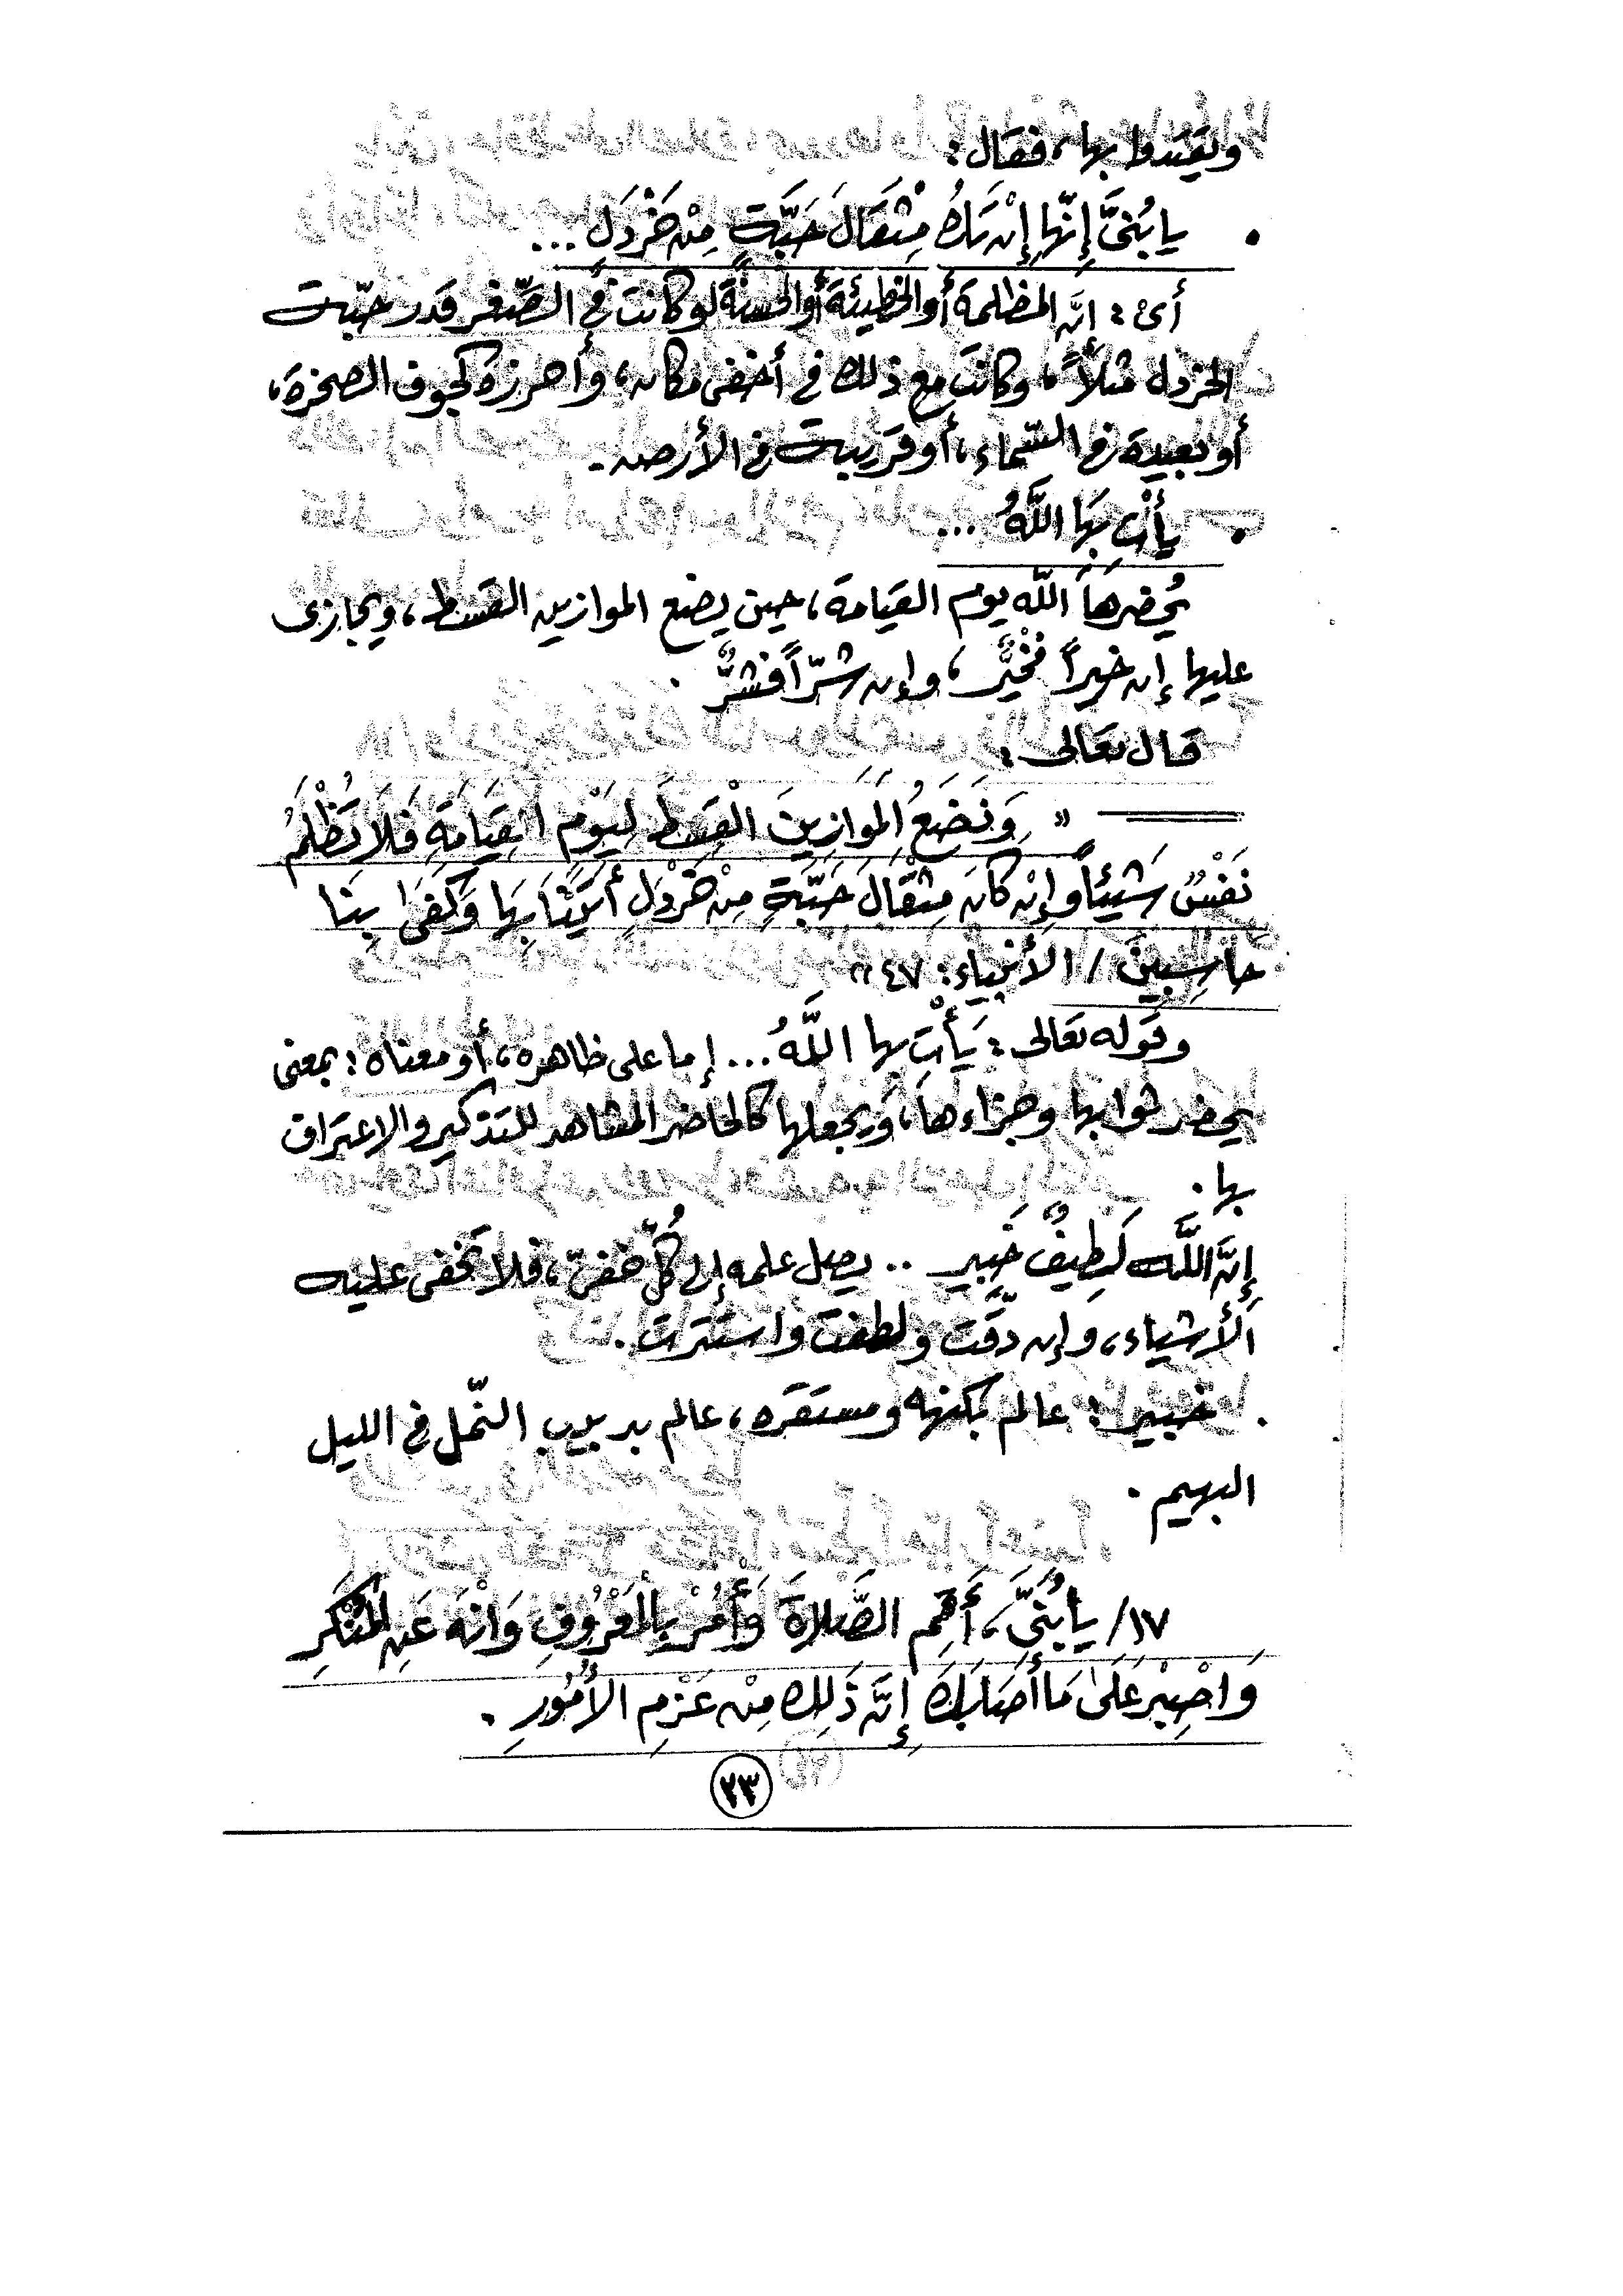 ويقتدوا بها، فقال:
• يا بُنَيَّ إِنَّهَا إِنْ تَكُ مِثْقَالَ حَبَّةٍ مِنْ خَرْدَلٍ ...
أىْ: إنّ المظلمة أو الخطيئة أو الحسنة لو كانت في الصّغر قدر حبّة
الخردل مثلاً، وكانت مع ذلك في أخفى مكان، وأحرزه كجوف الصخرة،
أو بعيدة في السّماء، أو قريبة في الأرض.
• يأْتِ بِهَا اللَّهُ ...
يُحضرها اللّه يوم القيامة، حين يضع الموازين القسط، ويجازى
عليها إن خيراً فخيْرٌ، وإن شرّاً فشرٌّ.
قال تعالى:
« وَنَضَعُ الْمَوَازِينَ الْقِسْطَ لِيَوْمِ الْقِيَامَةِ فَلَا تُظْلَمُ
نَفْسٌ شَيْئاً وإِنْ كَانَ مِثْقَالَ حَبَّةٍ مِنْ خَرْدَلٍ أَتَيْنَا بِهَا وَكَفَى بِنَا
حَاسِبِينَ / الأنبياء: ٤٧ »
وقوله تعالى: يَأْتِ بها اللَّهُ ... إما على ظاهره، أو معناه: بمعنى
يحضر ثوابها وجزاءها، ويجعلها كالحاضر المشاهد للتذكير والاعتراف
بها.
إِنَّ اللَّه لَطِيفٌ خَبِير .. يصل علمه إلى كُلّ خفىّ، فلا تخفى عليه
الأشياء، وإن دقّت ولطفت واستترت.
• خبير: عالم بكنهه ومستقره، عالم بدبيب النّمل في الليل
البهيم.
١٧/ يا بُنَيَّ، أَقِمِ الصَّلاةَ وَأْمُرْ بِالْمَعْرُوفِ وَانْهَ عَنِ الْمُنْكَرِ
وَاصْبِرْ عَلَى مَا أَصَابَكَ إِنَّ ذَلِكَ مِنْ عَزْمِ الأُمُورِ.
٢٣